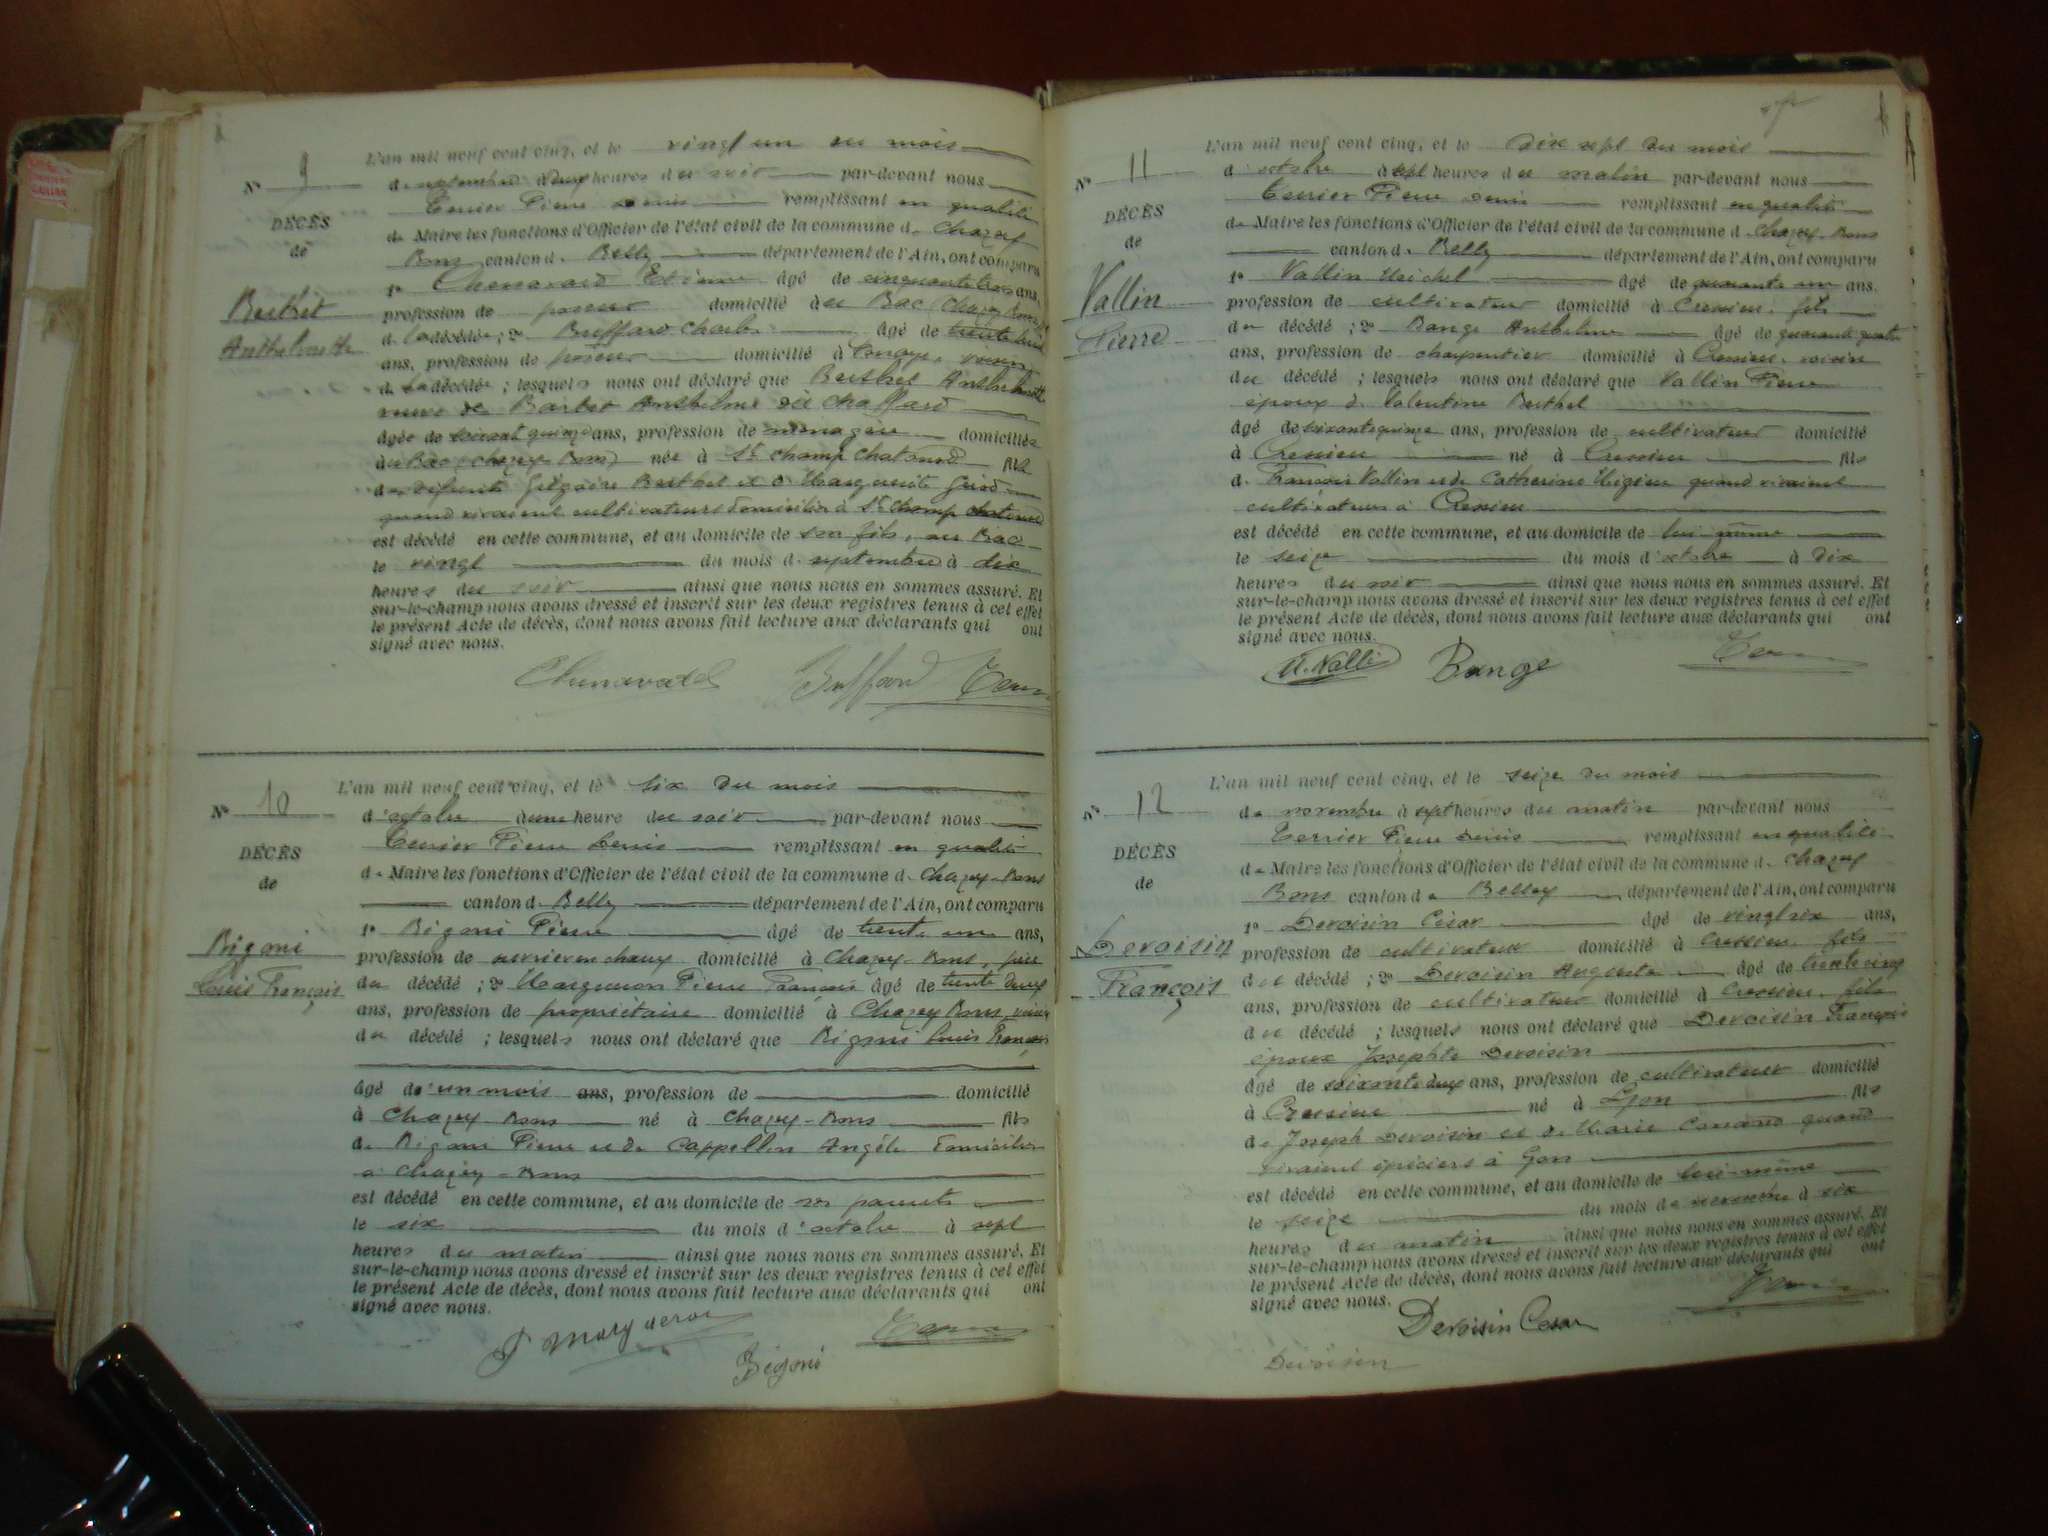 L'an mil neuf cent cinq, et le vingt un du mois
N° 9
de septembre à deux heures du soir par-devant nous
Terrier Pierre Denis remplissant en qualité
DÉCÈS
de Maire les fonctions d'Officier de l'état civil de la commune de Chazey
de
Bons canton de Belley département de l'Ain, ont comparu
1° Chenavard Etienne âgé de cinquante trois ans,
Berthet
profession de poseur domicilié au Bac (Chazey Bons)
Anthelmette
de la décédée ; 2° Buffard Charles âgé de trente
ans, profession de poseur domicilié à voisin
de la décédée ; lesquels nous ont déclaré que Berthet Anthelmette
veuve de Barbet Anthelme dit Chaffard
âgée de soixante quinze ans, profession de ménagère domiciliée
au Bac (Chazey Bons) née à St Champ Chatonod fille
de défunts Grégoire Berthet et de Marguerite
quand vivaient cultivateurs domiciliés à St Champ Chatonod
est décédé en cette commune, et au domicile de son fils, au Bac
le vingt du mois de septembre à dix
heures du soir ainsi que nous nous en sommes assuré. Et
sur-le-champ nous avons dressé et inscrit sur les deux registres tenus à cet effet
le présent Acte de décès, dont nous avons fait lecture aux déclarants qui ont
signé avec nous.
Chenavard Buffard Terrier
L'an mil neuf cent cinq, et le six du mois
N° 10
d'octobre à une heure du soir par-devant nous
Terrier Pierre Denis remplissant en qualité
DÉCÈS
de Maire les fonctions d'Officier de l'état civil de la commune de Chazey-Bons
de
canton de Belley département de l'Ain, ont comparu
1° Bigoni Pierre âgé de trente un ans,
Bigoni
profession de ouvrier en chaux domicilié à Chazey-Bons, père
Louis François
du décédé ; 2° Margueron Pierre François âgé de trente deux
ans, profession de propriétaire domicilié à Chazey Bons, voisin
du décédé ; lesquels nous ont déclaré que Bigoni Louis François
âgé de un mois ans, profession de domicilié
à Chazey-Bons né à Chazey-Bons fils
de Bigoni Pierre et de Cappellin Angèle domiciliés
à Chazey-Bons
est décédé en cette commune, et au domicile de ses parents
le six du mois d'octobre à sept
heures du matin ainsi que nous nous en sommes assuré. Et
sur-le-champ nous avons dressé et inscrit sur les deux registres tenus à cet effet
le présent Acte de décès, dont nous avons fait lecture aux déclarants qui ont
signé avec nous.
P Margueron Bigoni Terrier
L'an mil neuf cent cinq, et le dix sept du mois
N° 11
d'octobre à sept heures du matin par-devant nous
Terrier Pierre Denis remplissant en qualité
DÉCÈS
de Maire les fonctions d'Officier de l'état civil de la commune de Chazey-Bons
de
canton de Belley département de l'Ain, ont comparu
1° Vallin Michel âgé de quarante un ans.
Vallin
profession de cultivateur domicilié à Cressieu, fils
Pierre
du décédé ; 2° Bange Anthelme âgé de quarante quatre
ans, profession de charpentier domicilié à Cressieu, voisin
du décédé ; lesquels nous ont déclaré que Vallin Pierre
époux de Valentine Berthet
âgé de soixante quinze ans, profession de cultivateur domicilié
à Cressieu né à Cressieu fils
de François Vallin et de Catherine quand vivaient
cultivateurs à Cressieu
est décédé en cette commune, et au domicile de lui-même
le seize du mois d'octobre à dix
heures du soir ainsi que nous nous en sommes assuré. Et
sur-le-champ nous avons dressé et inscrit sur les deux registres tenus à cet effet
le présent Acte de décès, dont nous avons fait lecture aux déclarants qui ont
signé avec nous.
M. Vallin Bange Terrier
L'an mil neuf cent cinq, et le seize du mois
N° 12
de novembre à sept heures du matin par-devant nous
Terrier Pierre Denis remplissant en qualité
DÉCÈS
de Maire les fonctions d'Officier de l'état civil de la commune de Chazey
de
Bons canton de Belley département de l'Ain, ont comparu
1° Devoisin César âgé de vingt six ans,
Devoisin
profession de cultivateur domicilié à Cressieu, fils
François
du décédé ; 2° Devoisin Auguste âgé de trente cinq
ans, profession de cultivateur domicilié à Cressieu, fils
du décédé ; lesquels nous ont déclaré que Devoisin François
époux Josephte Devoisin
âgé de soixante deux ans, profession de cultivateur domicilié
à Cressieu né à Lyon fils
de Joseph Devoisin et de Marie quand
vivaient épiciers à Lyon
est décédé en cette commune, et au domicile de lui-même
le seize du mois de novembre à six
heures du matin ainsi que nous nous en sommes assuré. Et
sur-le-champ nous avons dressé et inscrit sur les deux registres tenus à cet effet
le présent Acte de décès, dont nous avons fait lecture aux déclarants qui ont
signé avec nous.
Devoisin Cesar Terrier
Devoisin